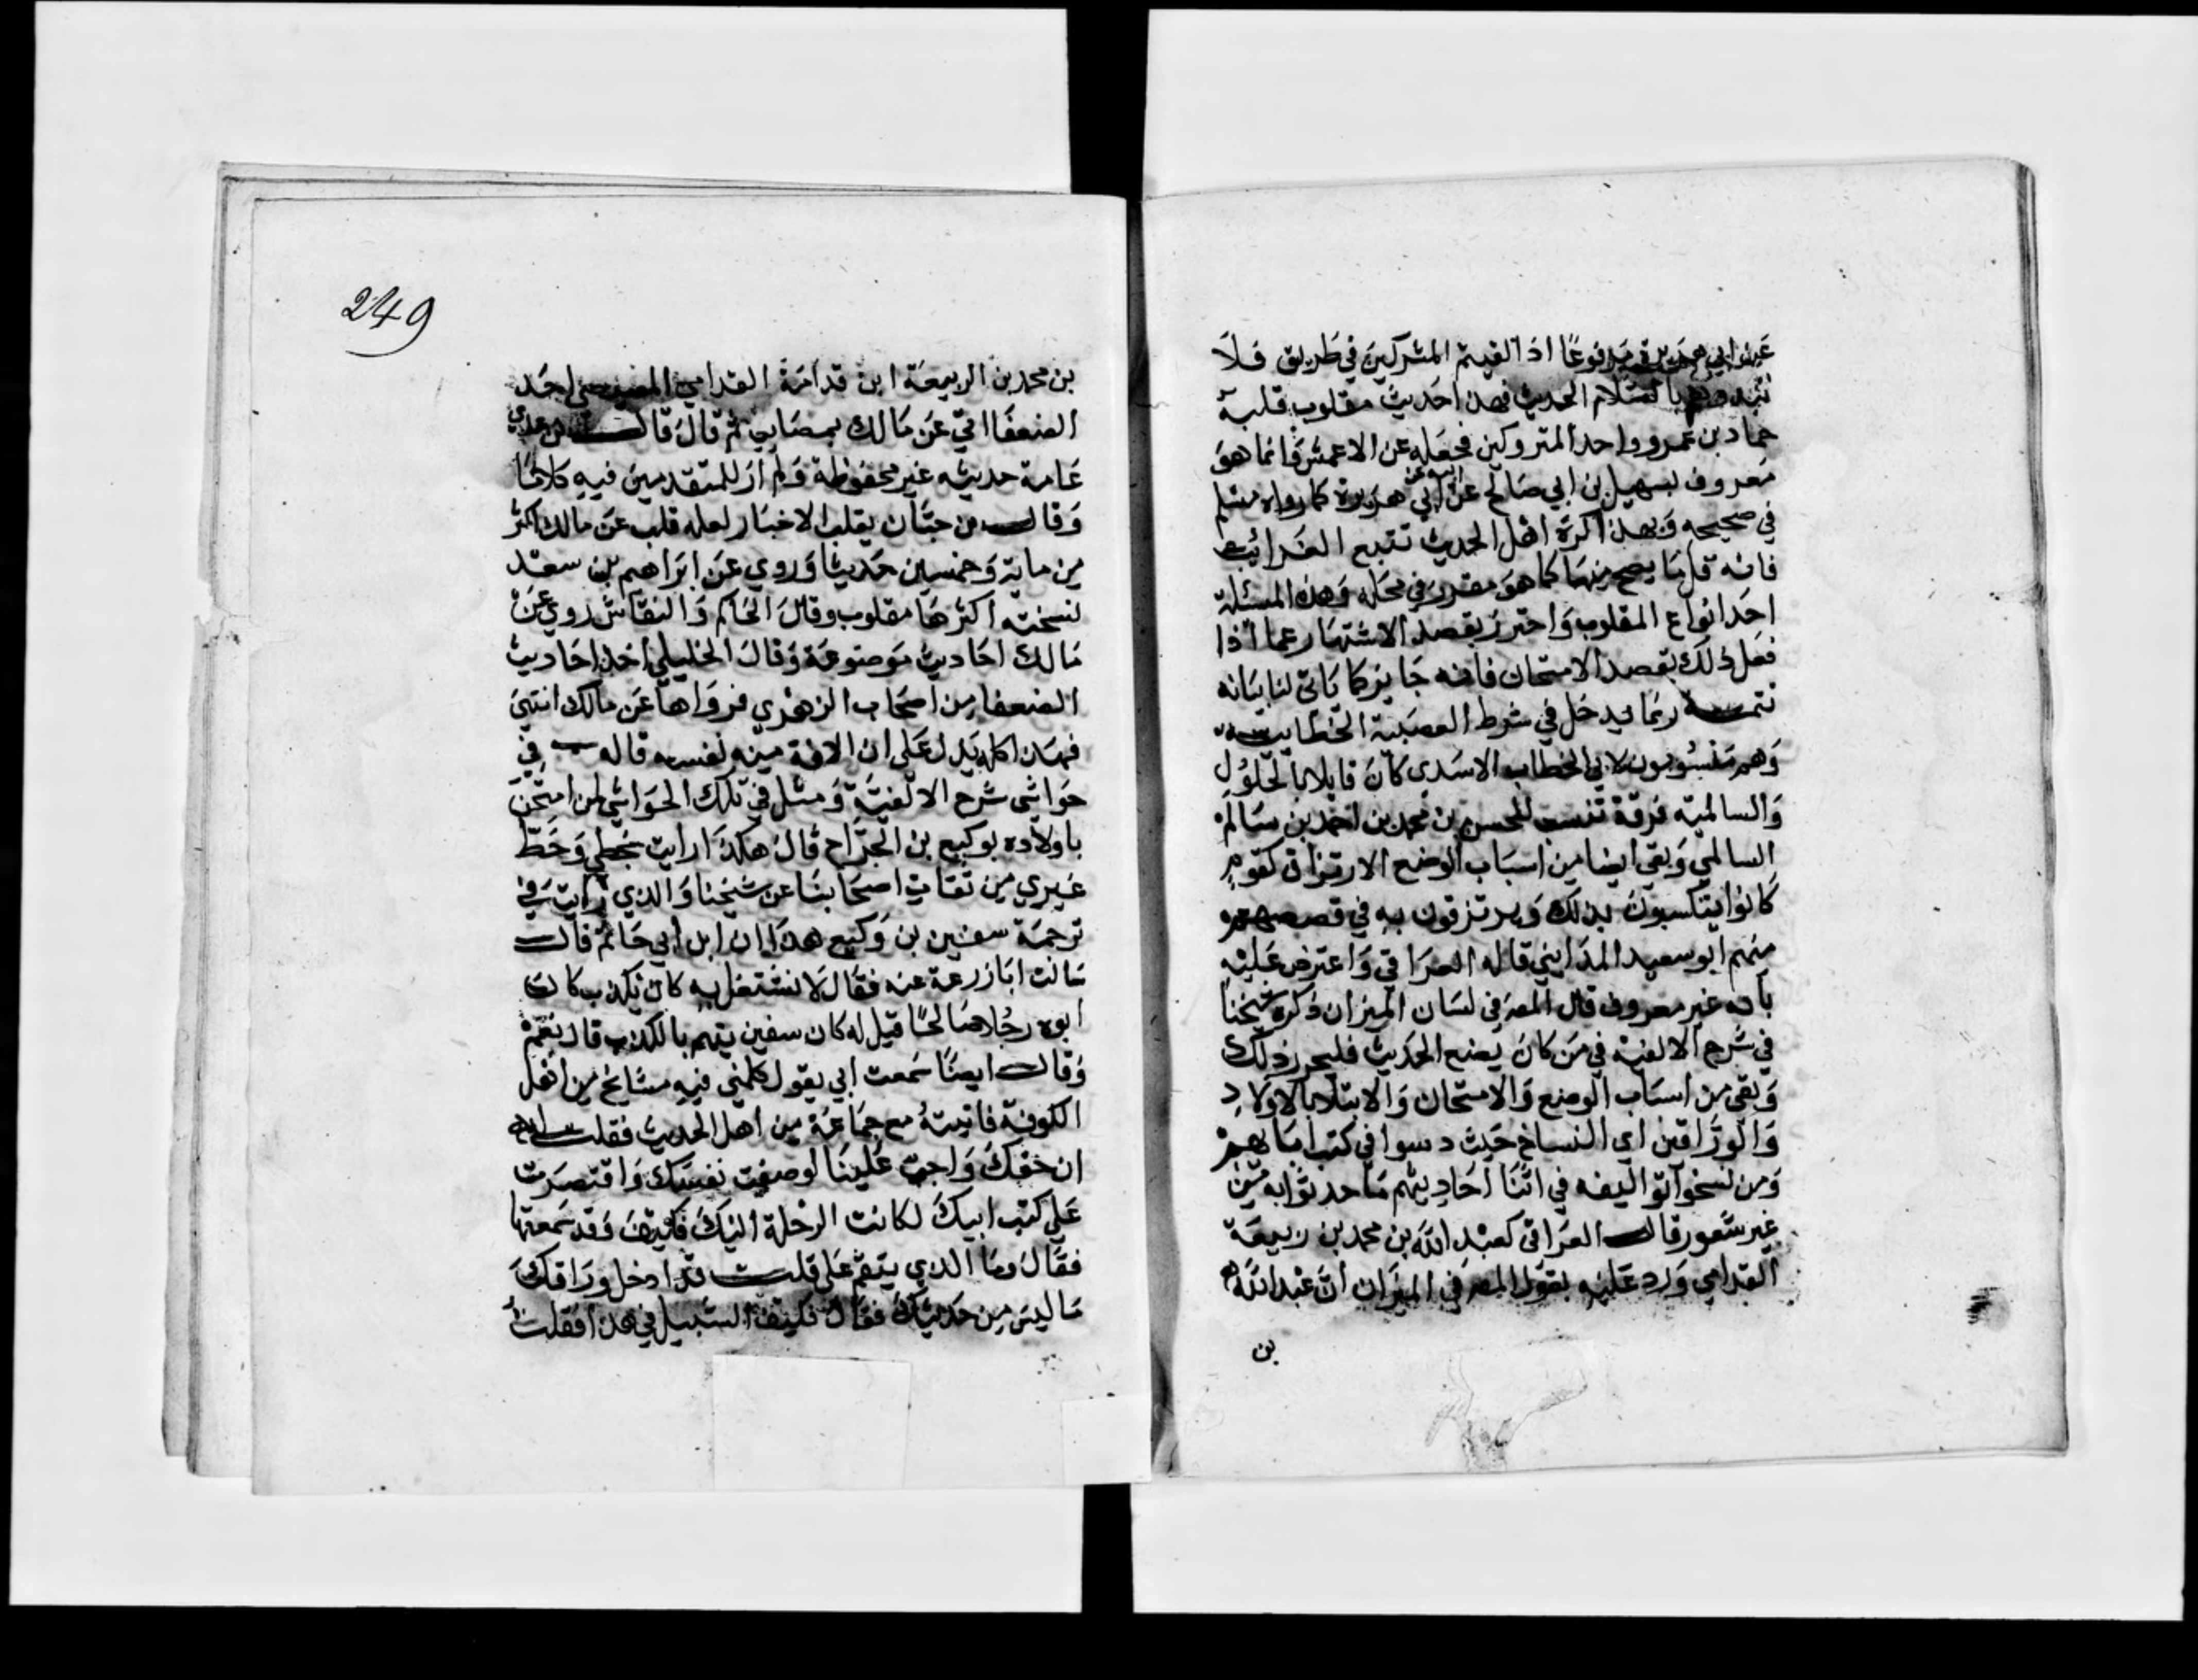 عن ابي هريرة مرفوعا اذا لقيتم المشركين في طريق فلا
تبدوهم بالسلام الحديث فهذا حديث مقلوب قلبه
حماد بن عمرو واحد المتروكين فجعله عن الاعمش وانما هو
معروف بسهيل بن ابي صالح عن ابيه عن ابي هريرة كما رواه مسلم
في صحيحه ولهذا كره اهل الحديث تتبع الغرائب
فانه قل ما يصح منها كما هو مقرر في محله وهذه المسئلة
احد انواع المقلوب واحترز بقصد الاشتهار عما اذا
فعل ذلك بقصد الامتحان فانه جايز كما ياتي لنا بيانه
تتمة ربما يدخل في شرط العصبية الخطابية
وهم منسوبون لابي الخطاب الاسدي كان قايلا بالحلول
والسالمية فرقة تنسب للحسن بن محمد بن احمد بن سالم
السالمي وبقي ايضا من اسباب الوضع الارتزاق كقوم
كانوا يتكسبون بذلك ويرتزقون به في قصصهم
منهم ابو سعيد المدايني قاله العراقي واعترض عليه
بانه غير معروف قال المص في لسان الميزان ذكره شيخنا
في شرح الالفية في من كان يضع الحديث فليحرر ذلك
وبقي من اسباب الوضع والامتحان والابتلا بالاولاد
والوراقين اي النساخ حيث دسوا في كتب ابايهم
ومن نسخوا تواليفه في اثنا احاديثهم ما حدثوا به من
غير شعور قال العراقي كعبد الله بن محمد بن ربيعة
القدامي ورد عليه بقول المص في الميزان ان عبد الله
بن
249
بن محمد بن الربيعة ابن قدامة القدامي المصيصي احد
الضعفا اتي عن مالك بمصايب ثم قال قال بن عدي
عامة حديثه غير محفوظة ولم ار للمتقدمين فيه كلاما
وقال بن حبان يقلب الاخبار لعله قلب عن مالك اكثر
من ماية وخمسين حديثا وروي عن ابراهيم بن سعد
نسخته اكثرها مقلوب وقال الحاكم والنقاش روي عن
مالك احاديث موضوعة وقال الخليلي اخذ احاديث
الضعفا من اصحاب الزهري فرواها عن مالك انتهى
فهذا كله يدل على ان الافة منه نفسه قاله ب في
حواشي شرح الالفية ومثل في تلك الحواشي لمن امتحن
باولاده بوكيع بن الجراح قال هكذا رايت بخطي وخط
غيري من ثقات اصحابنا عن شيخنا والذي رايت في
ترجمة سفين بن وكيع هذا ان ابن ابي حاتم قال
سالت ابا زرعة عنه فقال لا نشتغل به كان يكذب كان
ابوه رجلا صالحا قيل له كان سفين يتهم بالكذب قال نعم
وقال ايضا سمعت ابي يقول كلمني فيه مشايخ من اهل
الكوفة فاتيته مع جماعة من اهل الحديث فقلت له
ان حقك واجب علينا لو صنت نفسك واقتصرت
على كتب ابيك لكانت الرحلة اليك فكيف وقد سمعتها
فقال وما الذي ينقم علي قلت قد ادخل وراقك
ما ليس من حديثك فقال فكيف السبيل في هذا فقلت